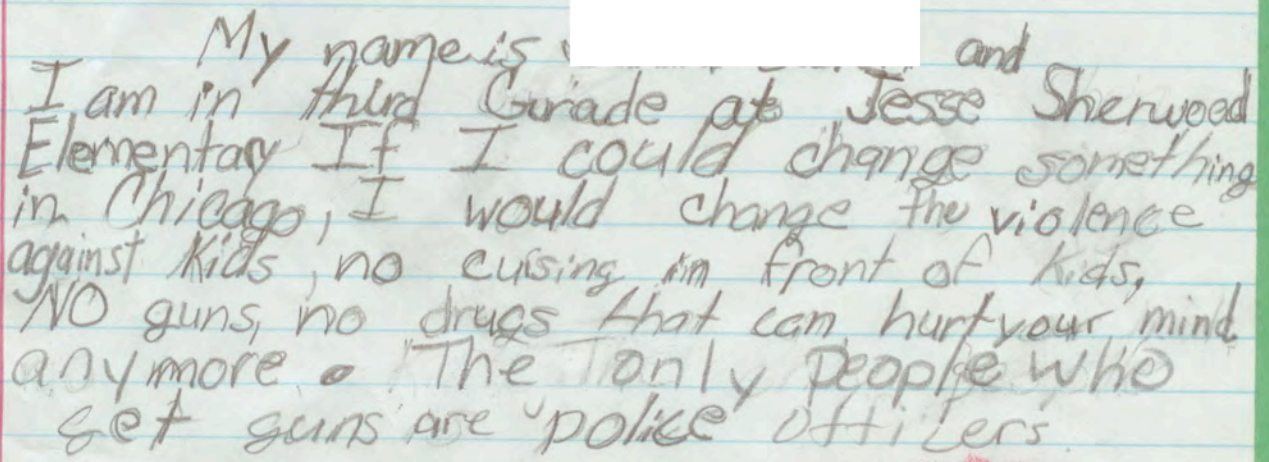 My name is and
I am in third Grade at Jesse Sherwood
Elementary If I could change something
in Chicago, I would change the violence
against Kids, no cuising in front of kids,
NO guns, no drugs that can hurt your mind
anymore. The only people who
get guns are police officers